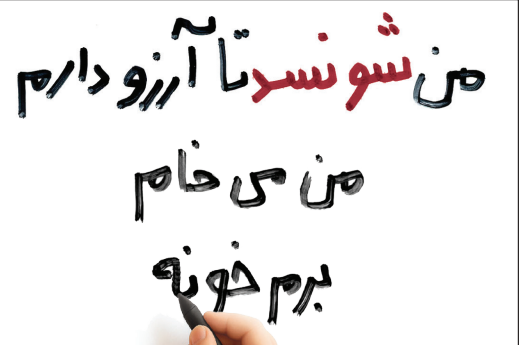 من شونسد تا آرزو دارم
من می خام
برم خونه